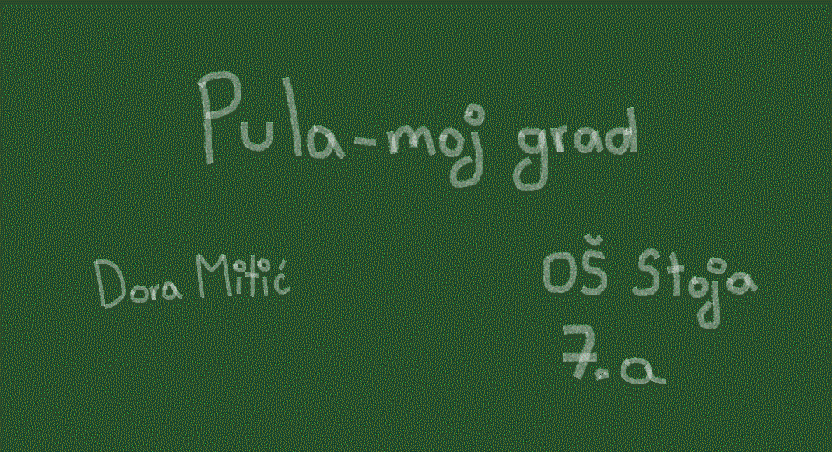 Pula-moj grad
Dora Mitić
OŠ Stoja
7.a